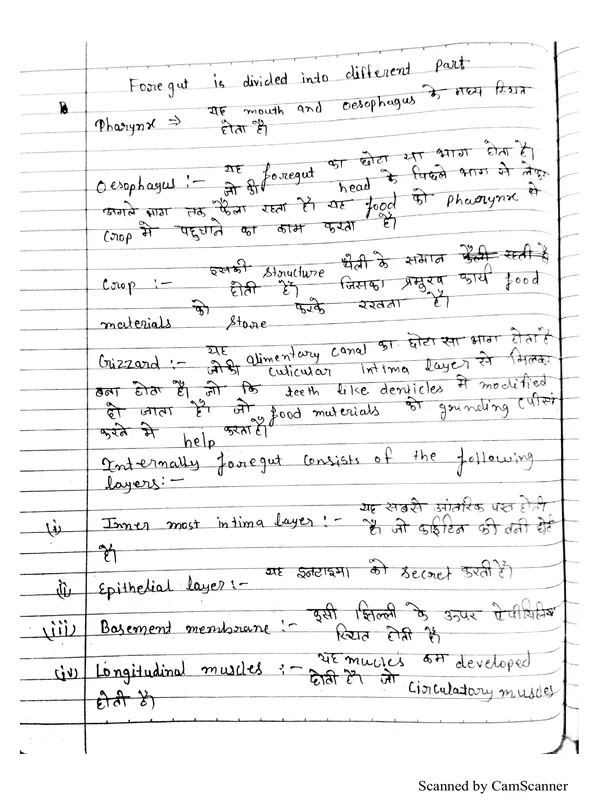 Foregut is divided into different part
Pharynx ⇒ यह mouth and oesophagus के मध्य स्थित
होता है।
Oesophagus :- यह foregut का छोटा सा भाग होता है।
जो की head के पिछले भाग से लेकर
अगले भाग तक फैला रहता है। यह food को Pharynx से
Crop मे पहुचाने का काम करता है।
Crop :- इसकी structure थैली के समान फैली रहती है
होती है। जिसका प्रमुख कार्य food
materials को store करके रखता है।
Gizzard :- यह alimentary canal का छोटा सा भाग होता है
जोकी cuticular intima layer से मिलकर
बना होता है। जो कि teeth like denticles मे modified
हो जाता है। जो food materials को grinding (पीसने
करने मे help करता है।
Internally foregut consists of the following
layers:-
(i) Inner most intima layer :- यह सबसे आंतरिक परत होती
है। जो काईटिन की बनी होती
है।
(ii) Epithelial layer :- यह इनटाइमा को secret करती है।
(iii) Basement membrane :- इसी झिल्ली के ऊपर
स्थित होती है
(iv) Longitudinal muscles :- यह mucles कम developed
होती है। जो Circulatory muscles
होती है।
Scanned by CamScanner